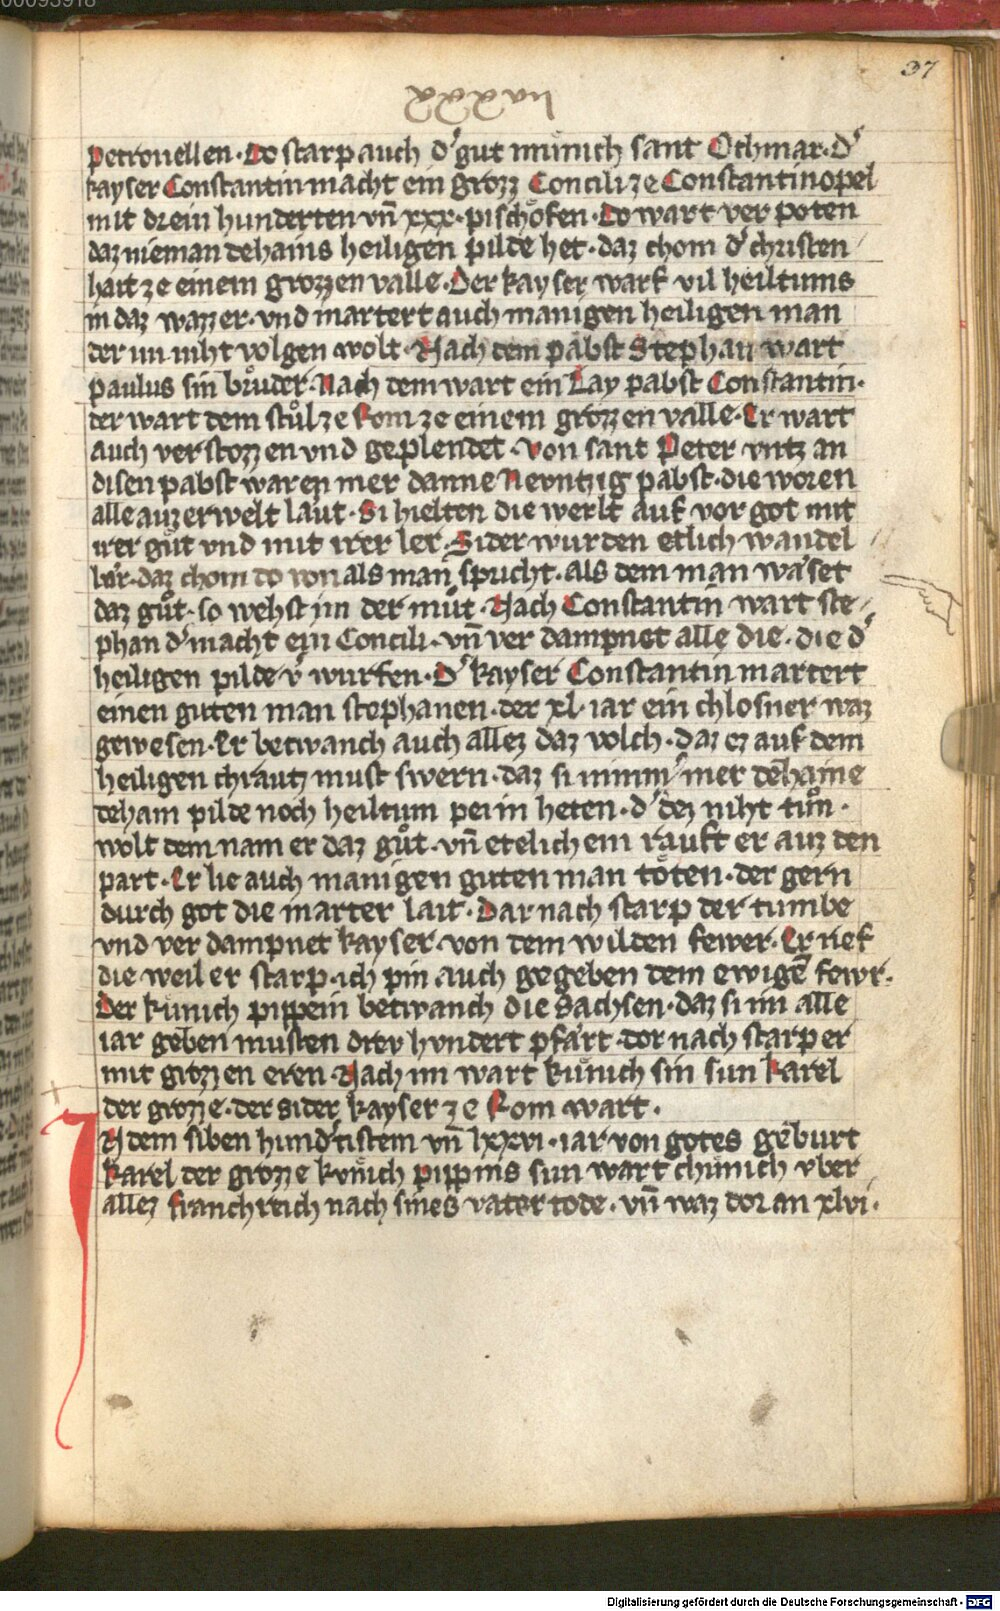 00093918
37
xxxvii
Petronellen · Do starp auch d' gut münich sant Othmar · D'
kayser Constantin macht ein grozz Concili ze Constantinopel
mit drein hunderten vn̄ xxx · pischöfen · Do wart ver poten
daz nieman dehains heiligen pilde het · daz chom d' christen
hait ze einem grozzen valle · Der kayser warf vil heiltums
in daz wazzer · vnd martert auch manigen heiligen man
der im niht volgen wolt · Nach dem pabst Stephan wart
paulus sin brůder · Nach dem wart ein Lay pabst Constantin ·
der wart dem stůl ze Rom ze einem grozzen valle · Er wart
auch verstozzen vnd geplendet · von sant Peter vntz an
disen pabst waren mer danne Nevntzig pabst · die woren
alle auzerwelt laut · Si hielten die werlt auf vor got mit
irer gůt vnd mit irer ler · Sider wurden etlich wandel
bær · daz chom do von als man spricht · als dem man wa'set
daz gůt · so wehst im der můt · Nach Constantin wart ste
phan d' macht ein Concili · vn̄ ver dampnet alle die · die d'
heiligen pilde v' wurfen · D' kayser Constantin martert
einen guten man stephanen · der xl · iar ein chlosner waz
gewesen · Er betwanch auch allez daz volch · daz ez auf dem
heiligen chrautz must swern · daz si nimm' mer dehaine
deham pilde noch heiltum pei in heten · d' dez niht tůn ·
wolt dem nam er daz gůt · vn̄ etelichem rauft er auz den
part · Er lie auch manigen guten man töten · der gern
durch got die marter lait · Dar nach starp der tumbe
vnd ver dampnet kayser · von dem wilden fewer · Er rief
die weil er starp · ich pin auch gegeben dem ewigē fewr ·
Der künich pippein betwanch die Sachsen · daz si im alle
iar geben musten drev hvndert pfa'rt · dor nach starp er
mit grozzen eren · Nach im wart künich sin sun karel
der grozze · der sider kayser ze Rom wart ·
IN dem siben hund'tistem vn̄ lxxvi · iar von gotes geburt
karel der grozze kvnich pippins sun wart chünich vber
allez franchreich nach sines vater tode · vn̄ waz dor an xlvi ·
Digitalisierung gefördert durch die Deutsche Forschungsgemeinschaft - DFG